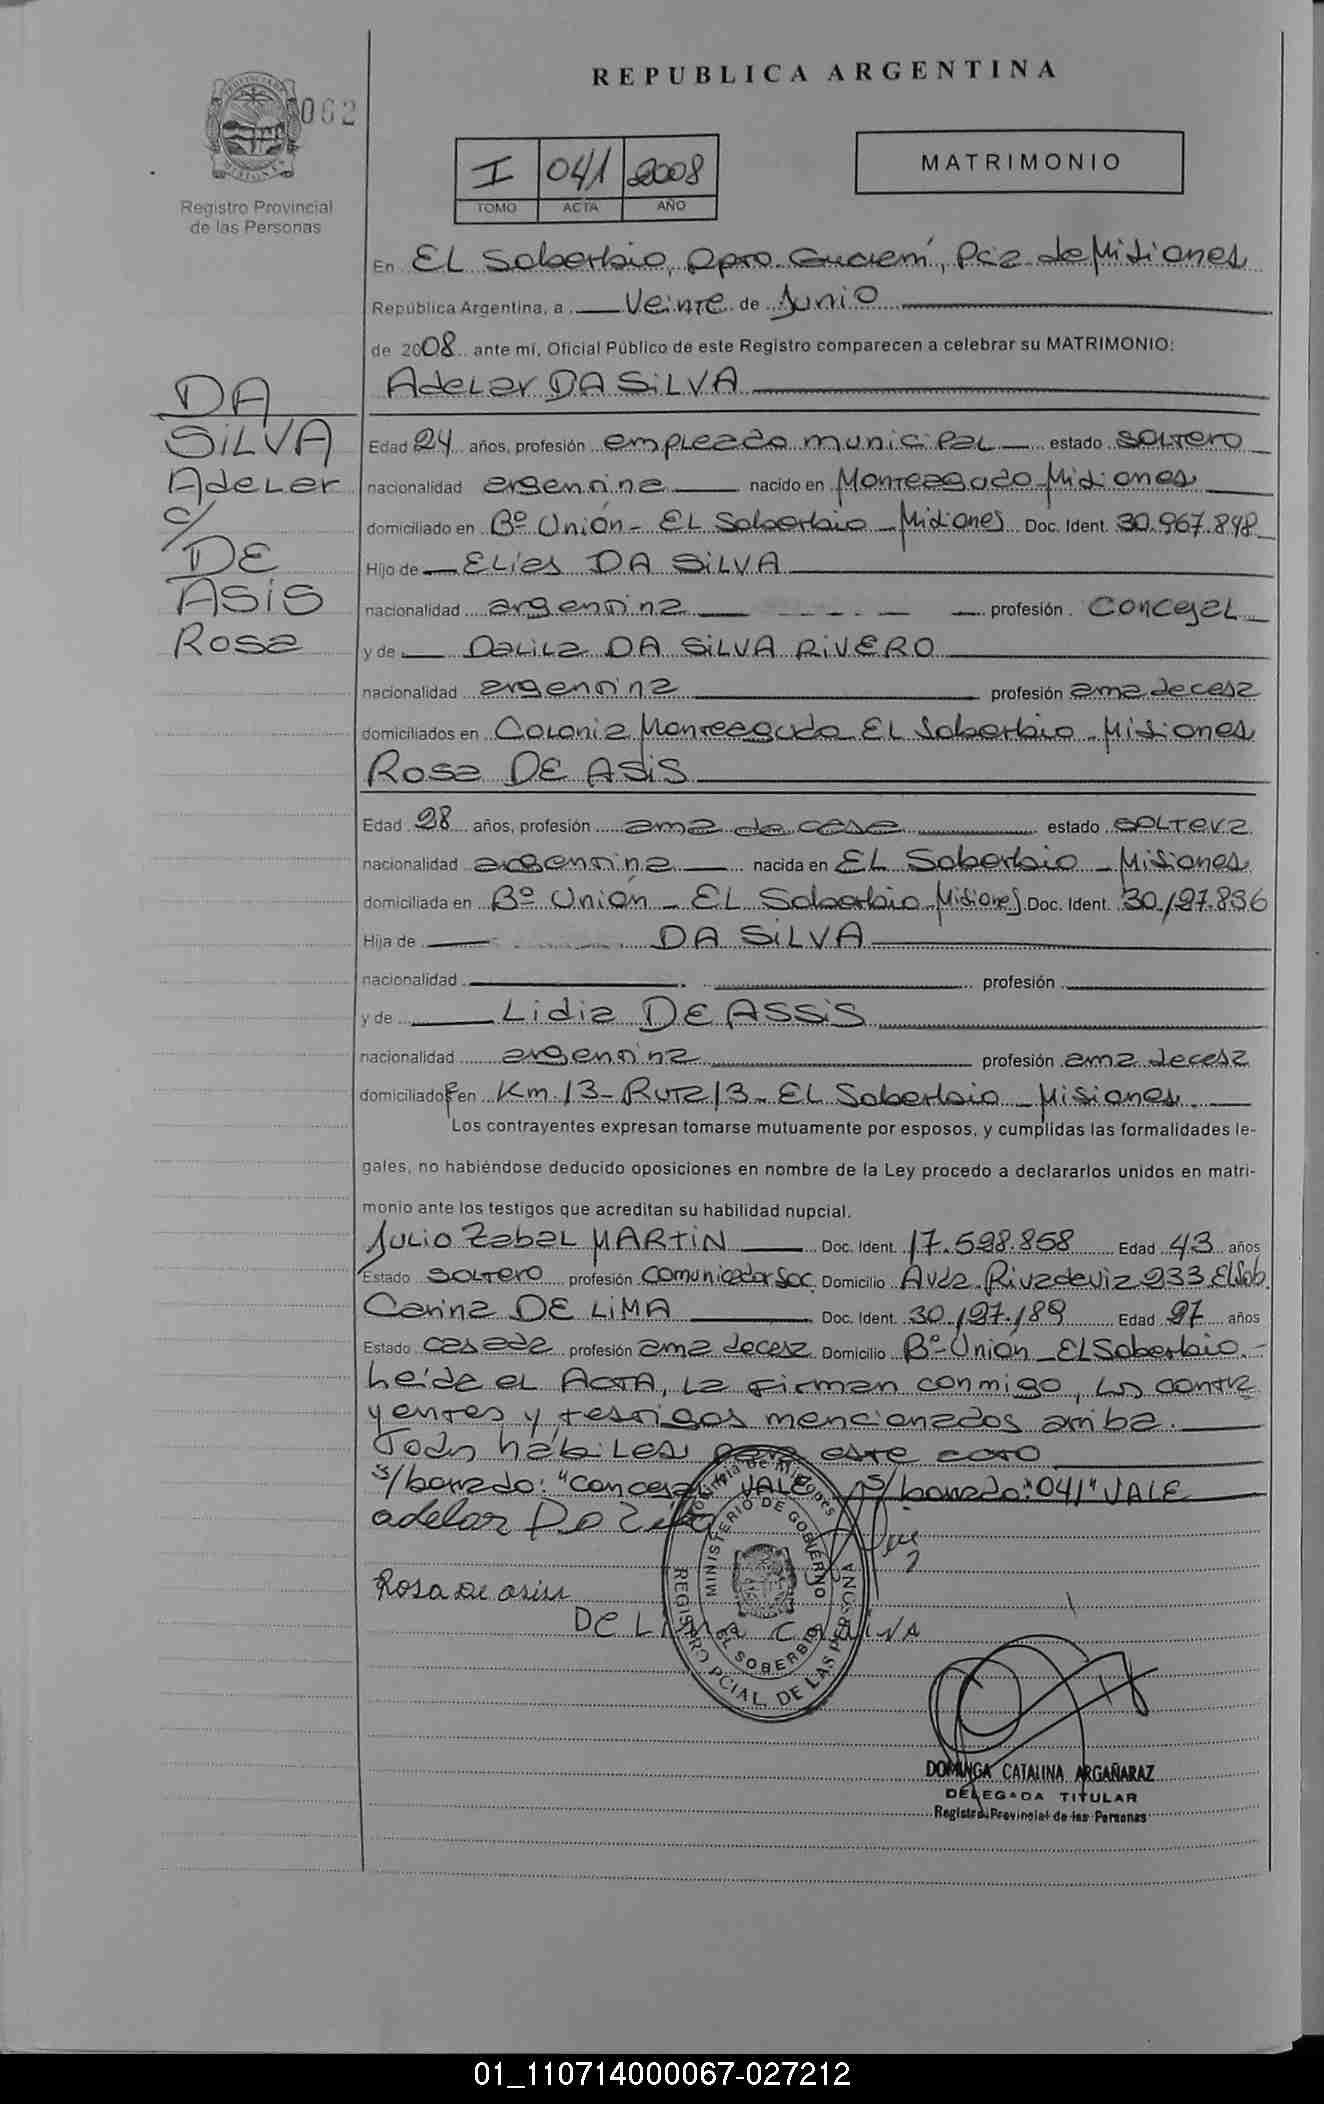 REPUBLICA ARGENTINA
062
Registro Provincial
de las Personas
I 041 2008
TOMO ACTA AÑO
MATRIMONIO
En EL Soberbio, Dpto. Guaraní, Pcia de Misiones
República Argentina, a Veinte de Junio
de 2008 ante mí, Oficial Público de este Registro comparecen a celebrar su MATRIMONIO:
Adelar DA SILVA
DA
SILVA
Adelar
c/
DE
ASIS
Rosa
Edad 24 años, profesión empleado municipal estado soltero
nacionalidad argentina nacido en Monteagudo Misiones
domiciliado en Bº Unión - EL Soberbio - Misiones Doc. Ident. 30.967.848
Hijo de Elias DA SILVA
nacionalidad argentina profesión Concejal
y de Dalila DA SILVA RIVERO
nacionalidad argentina profesión ama de casa
domiciliados en Colonia Monteagudo EL Soberbio - Misiones
Rosa DE ASIS
Edad 28 años, profesión ama de casa estado soltera
nacionalidad argentina nacida en EL Soberbio - Misiones
domiciliada en Bº Unión - EL Soberbio Misiones Doc. Ident. 30.127.836
Hija de DA SILVA
nacionalidad profesión
y de Lidia DE ASSIS
nacionalidad argentina profesión ama de casa
domiciliados en Km 13 - Ruta 13 - EL Soberbio - Misiones
Los contrayentes expresan tomarse mutuamente por esposos, y cumplidas las formalidades le-
gales, no habiéndose deducido oposiciones en nombre de la Ley procedo a declararlos unidos en matri-
monio ante los testigos que acreditan su habilidad nupcial.
Julio Zabal MARTIN Doc. Ident. 17.598.858 Edad 43 años
Estado soltero profesión comunicador Soc. Domicilio Avda. Rivadavia 233 El Sob.
Carina DE LIMA Doc. Ident. 30.127.189 Edad 27 años
Estado casada profesión ama de casa Domicilio Bº Unión - El Soberbio. -
Leída el ACTA, la firman conmigo, los contra
yentes y testigos mencionados arriba.
Todos hábiles para este acto
s/borrado: "Concejal" VALE s/borrado: "041" VALE
adelar Da Silva
Rosa De asis
DE LIMA CARINA
Provincia de Misiones
MINISTERIO DE GOBIERNO
EL SOBERBIO
REGISTRO PCIAL. DE LAS PERSONAS
DOMINGA CATALINA ARGAÑARAZ
DELEGADA TITULAR
Registro Provincial de las Personas
01_110714000067-027212